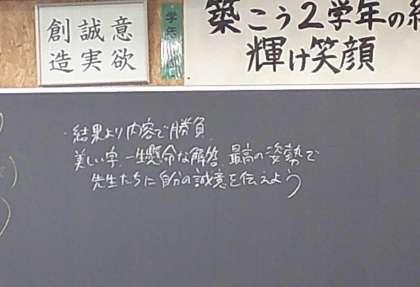 創誠意
造実欲
学年
築こう2学年の
輝け笑顔
・結果より内容で勝負
美しい字、一生懸命な解答、最高の姿勢で
先生たちに自分の誠意を伝えよう